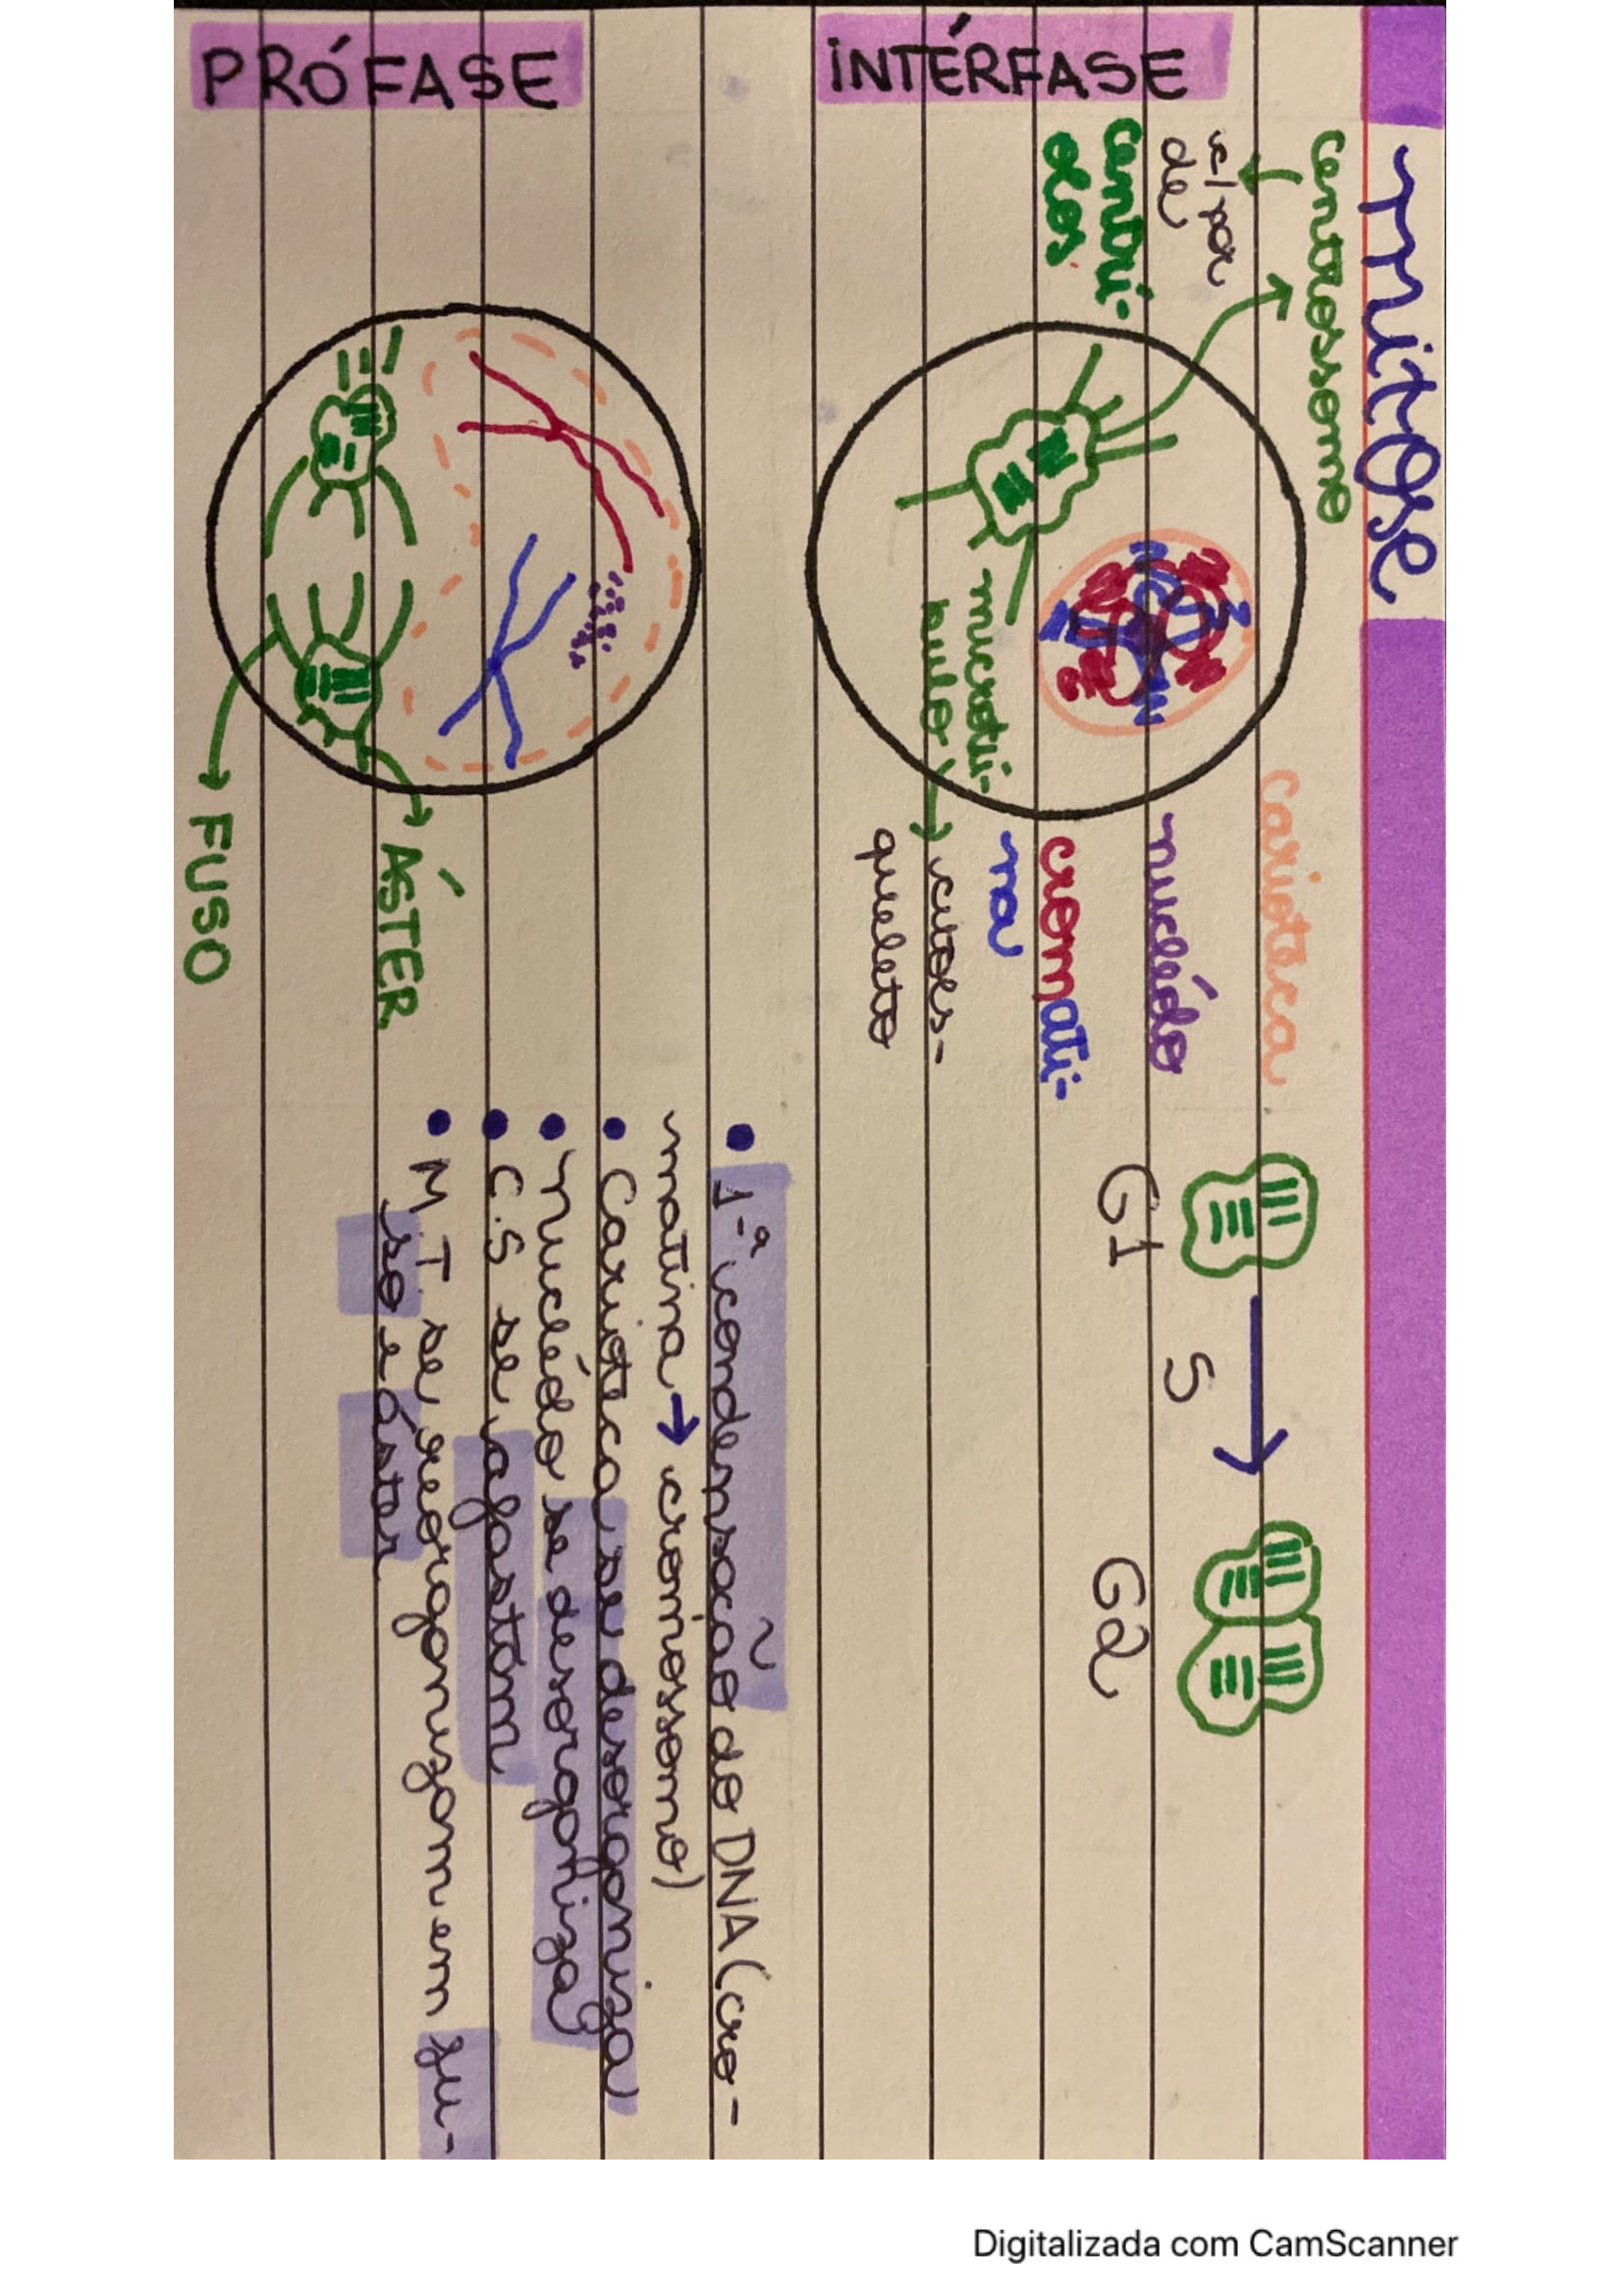 mitose
INTÉRFASE
centrossomo
c/ par
de
centrí-
olos
microtú-
bulo → citoes-
queleto
carioteca
nucléolo
cromati-
na
G1 S G2
PRÓFASE
ÁSTER
FUSO
• 1ª condensação do DNA (cro-
matina → cromossomo)
• Carioteca se desorganiza
• Nucléolo se desorganiza
• C.S se afastam
• M.T. se reorganizam em fu-
so e áster
Digitalizada com CamScanner